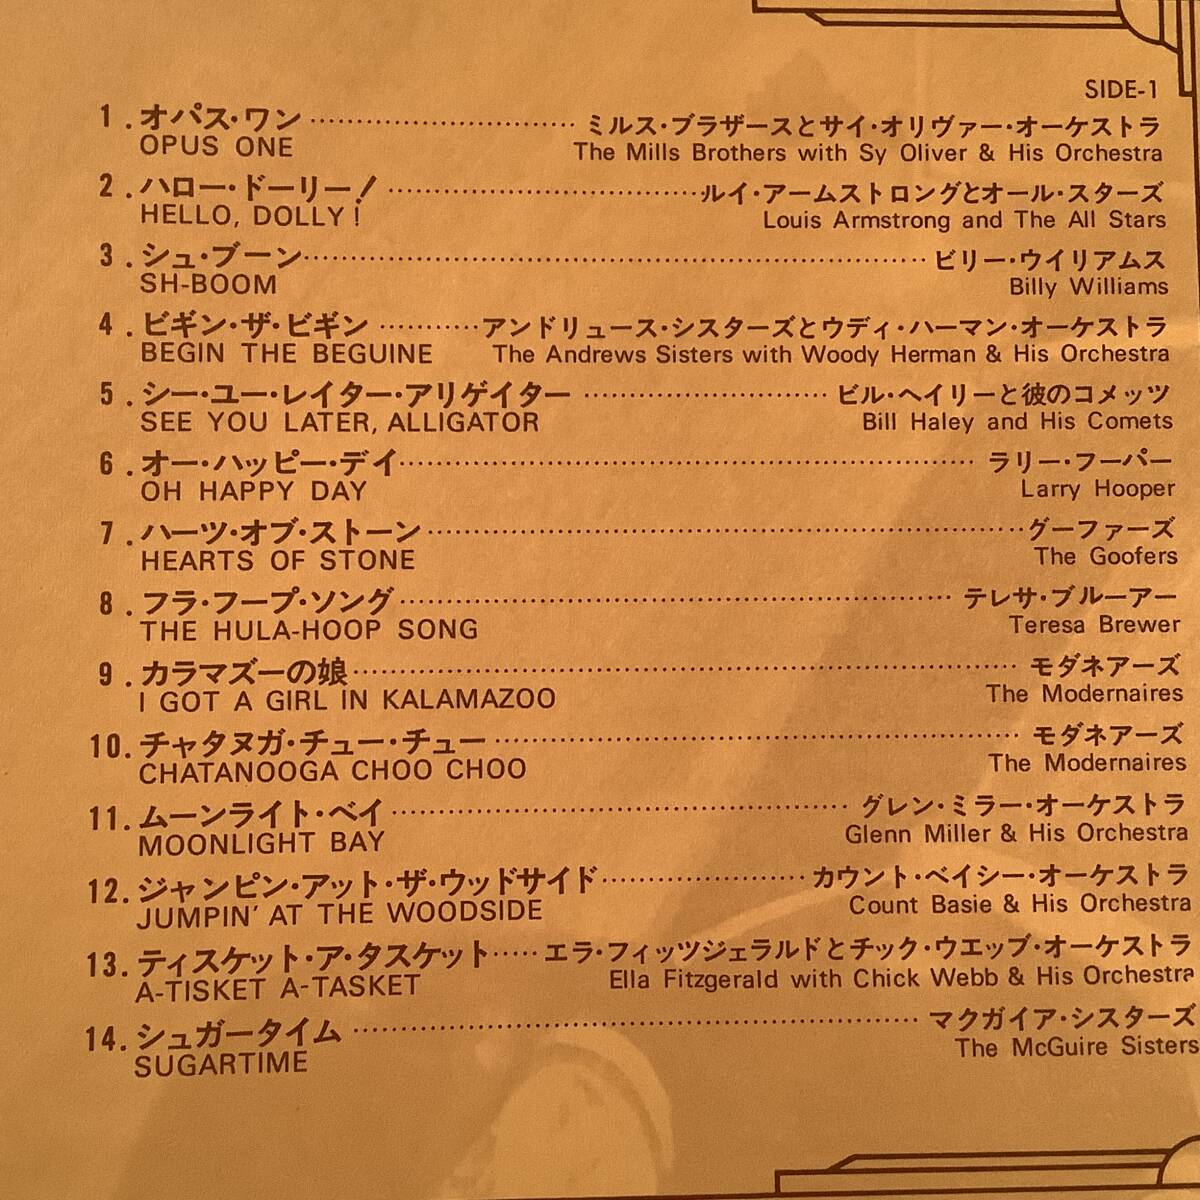 SIDE-1
1. オパス・ワン ミルス・ブラザースとサイ・オリヴァー・オーケストラ
OPUS ONE The Mills Brothers with Sy Oliver & His Orchestra
2. ハロー・ドーリー! ルイ・アームストロングとオール・スターズ
HELLO, DOLLY! Louis Armstrong and The All Stars
3. シュ・ブーン ビリー・ウイリアムス
SH-BOOM Billy Williams
4. ビギン・ザ・ビギン アンドリュース・シスターズとウディ・ハーマン・オーケストラ
BEGIN THE BEGUINE The Andrews Sisters with Woody Herman & His Orchestra
5. シー・ユー・レイター・アリゲイター ビル・ヘイリーと彼のコメッツ
SEE YOU LATER, ALLIGATOR Bill Haley and His Comets
6. オー・ハッピー・デイ ラリー・フーパー
OH HAPPY DAY Larry Hooper
7. ハーツ・オブ・ストーン グーファーズ
HEARTS OF STONE The Goofers
8. フラ・フープ・ソング テレサ・ブルーアー
THE HULA-HOOP SONG Teresa Brewer
9. カラマズーの娘 モダネアーズ
I GOT A GIRL IN KALAMAZOO The Modernaires
10. チャタヌガ・チュー・チュー モダネアーズ
CHATANOOGA CHOO CHOO The Modernaires
11. ムーンライト・ベイ グレン・ミラー・オーケストラ
MOONLIGHT BAY Glenn Miller & His Orchestra
12. ジャンピン・アット・ザ・ウッドサイド カウント・ベイシー・オーケストラ
JUMPIN' AT THE WOODSIDE Count Basie & His Orchestra
13. ティスケット・ア・タスケット エラ・フィッツジェラルドとチック・ウエッブ・オーケストラ
A-TISKET A-TASKET Ella Fitzgerald with Chick Webb & His Orchestra
14. シュガータイム マクガイア・シスターズ
SUGARTIME The McGuire Sisters